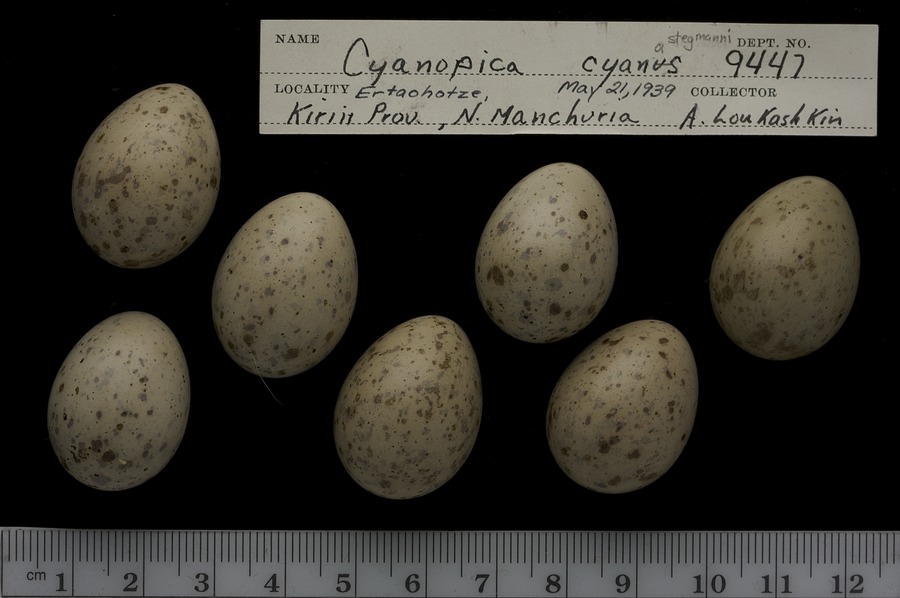 NAME Cyanopica cyanus a stegmanni DEPT. NO. 9447
LOCALITY Ertaohotze, May 21, 1939 COLLECTOR
Kirin Prov., N. Manchuria A. Loukashkin
cm 1 2 3 4 5 6 7 8 9 10 11 12